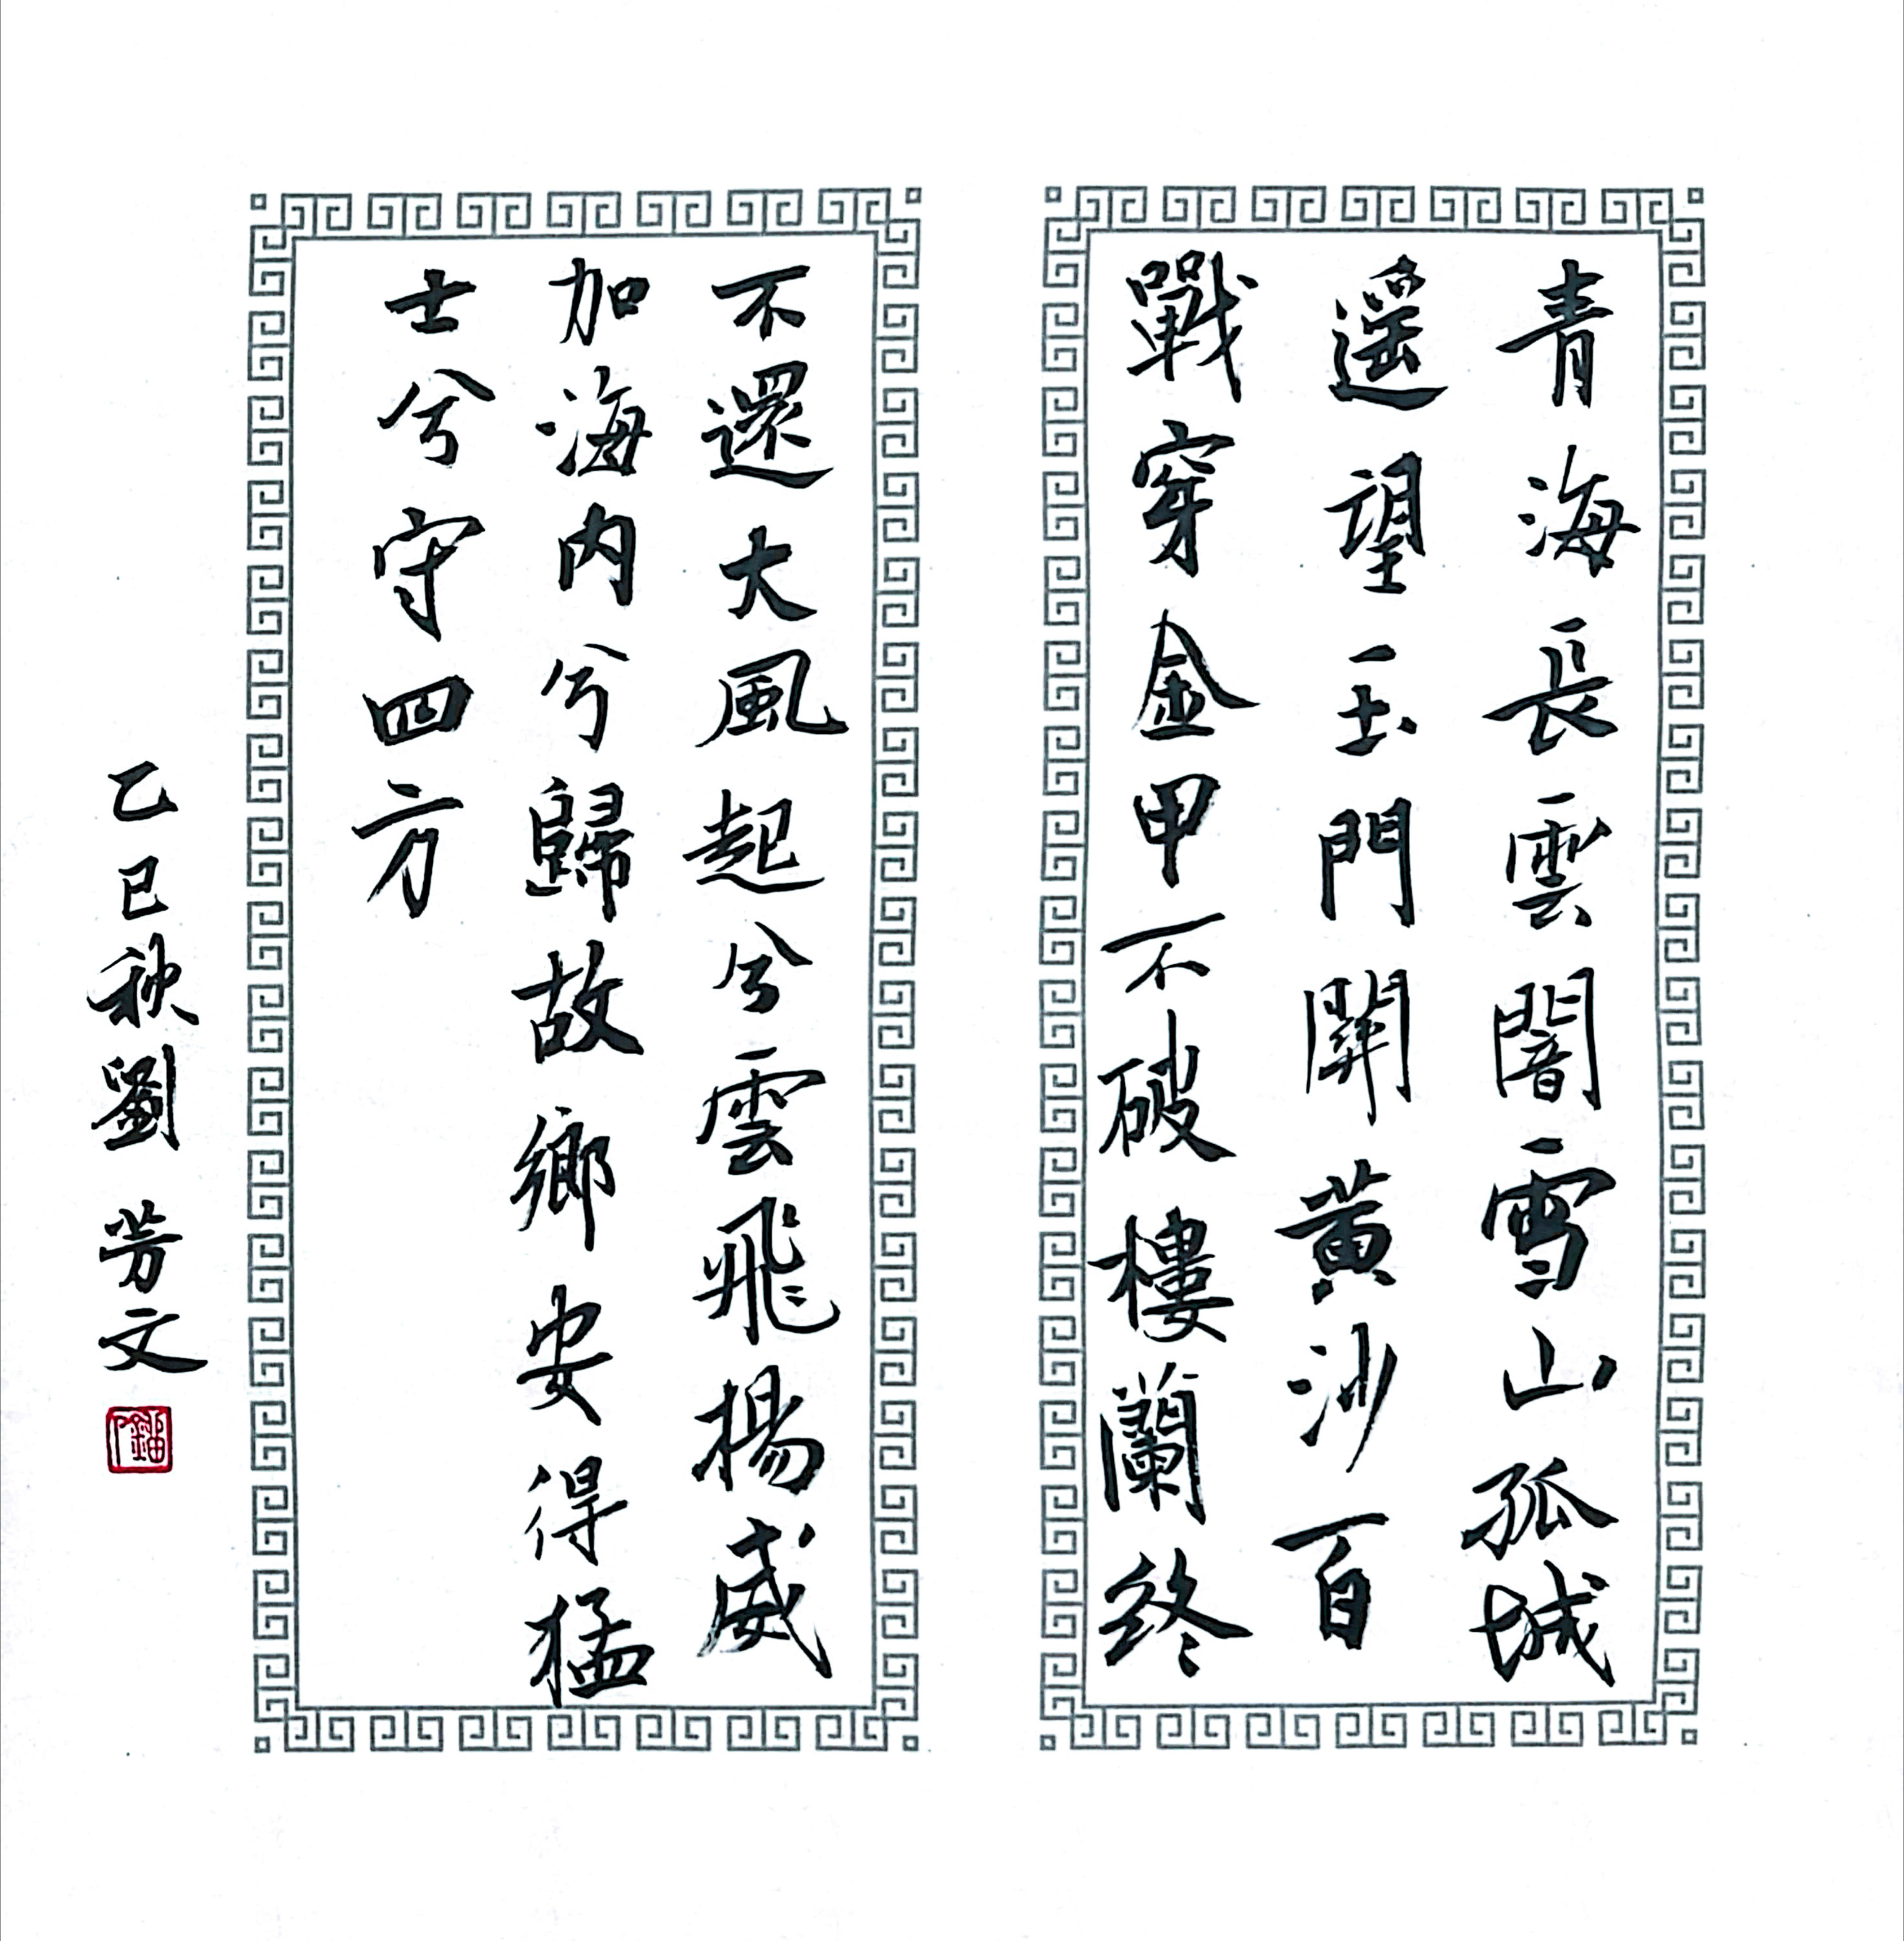 青海長雲闇雪山孤城
遥望玉門關黄沙百
戰穿金甲不破樓蘭終
不還大風起兮雲飛揚威
加海内兮歸故鄉安得猛
士兮守四方
乙巳秋劉芳文